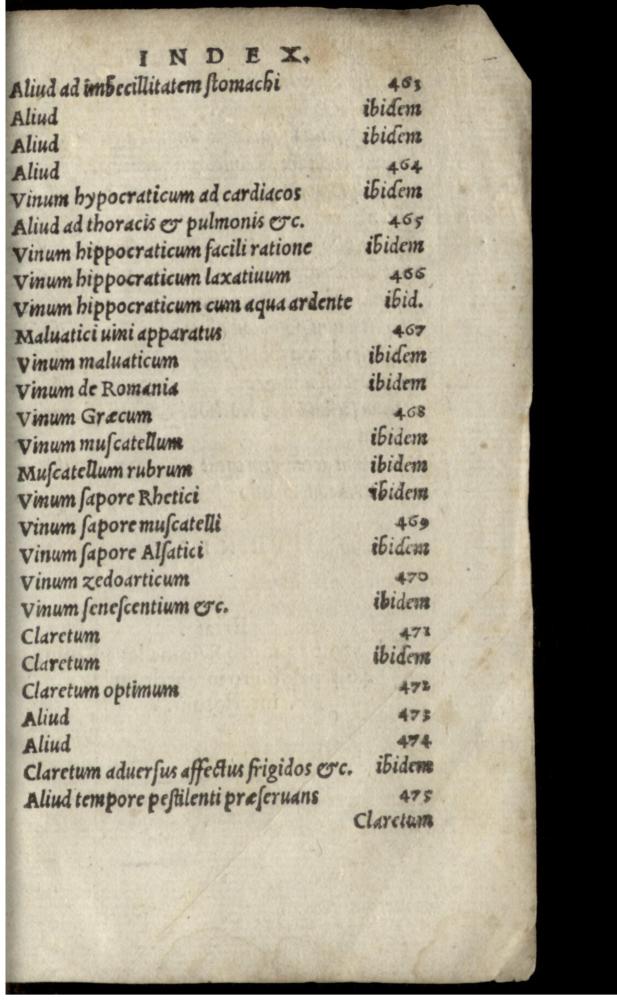 INDEX.
Aliud ad imbecillitatem ſtomachi 463
Aliud ibidem
Aliud ibidem
Aliud 464
Vinum hypocraticum ad cardiacos ibidem
Aliud ad thoracis & pulmonis &c. 465
Vinum hippocraticum facili ratione ibidem
Vinum hippocraticum laxatiuum 466
Vinum hippocraticum cum aqua ardente ibid.
Maluatici uini apparatus 467
Vinum maluaticum ibidem
Vinum de Romania ibidem
Vinum Græcum 468
Vinum muſcatellum ibidem
Muſcatellum rubrum ibidem
Vinum ſapore Rhetici ibidem
Vinum ſapore muſcatelli 469
Vinum ſapore Alſatici ibidem
Vinum zedoarticum 470
Vinum ſeneſcentium &c. ibidem
Claretum 471
Claretum ibidem
Claretum optimum 472
Aliud 473
Aliud 474
Claretum aduerſus affectus frigidos &c. ibidem
Aliud tempore peſtilenti præſeruans 475
Claretum